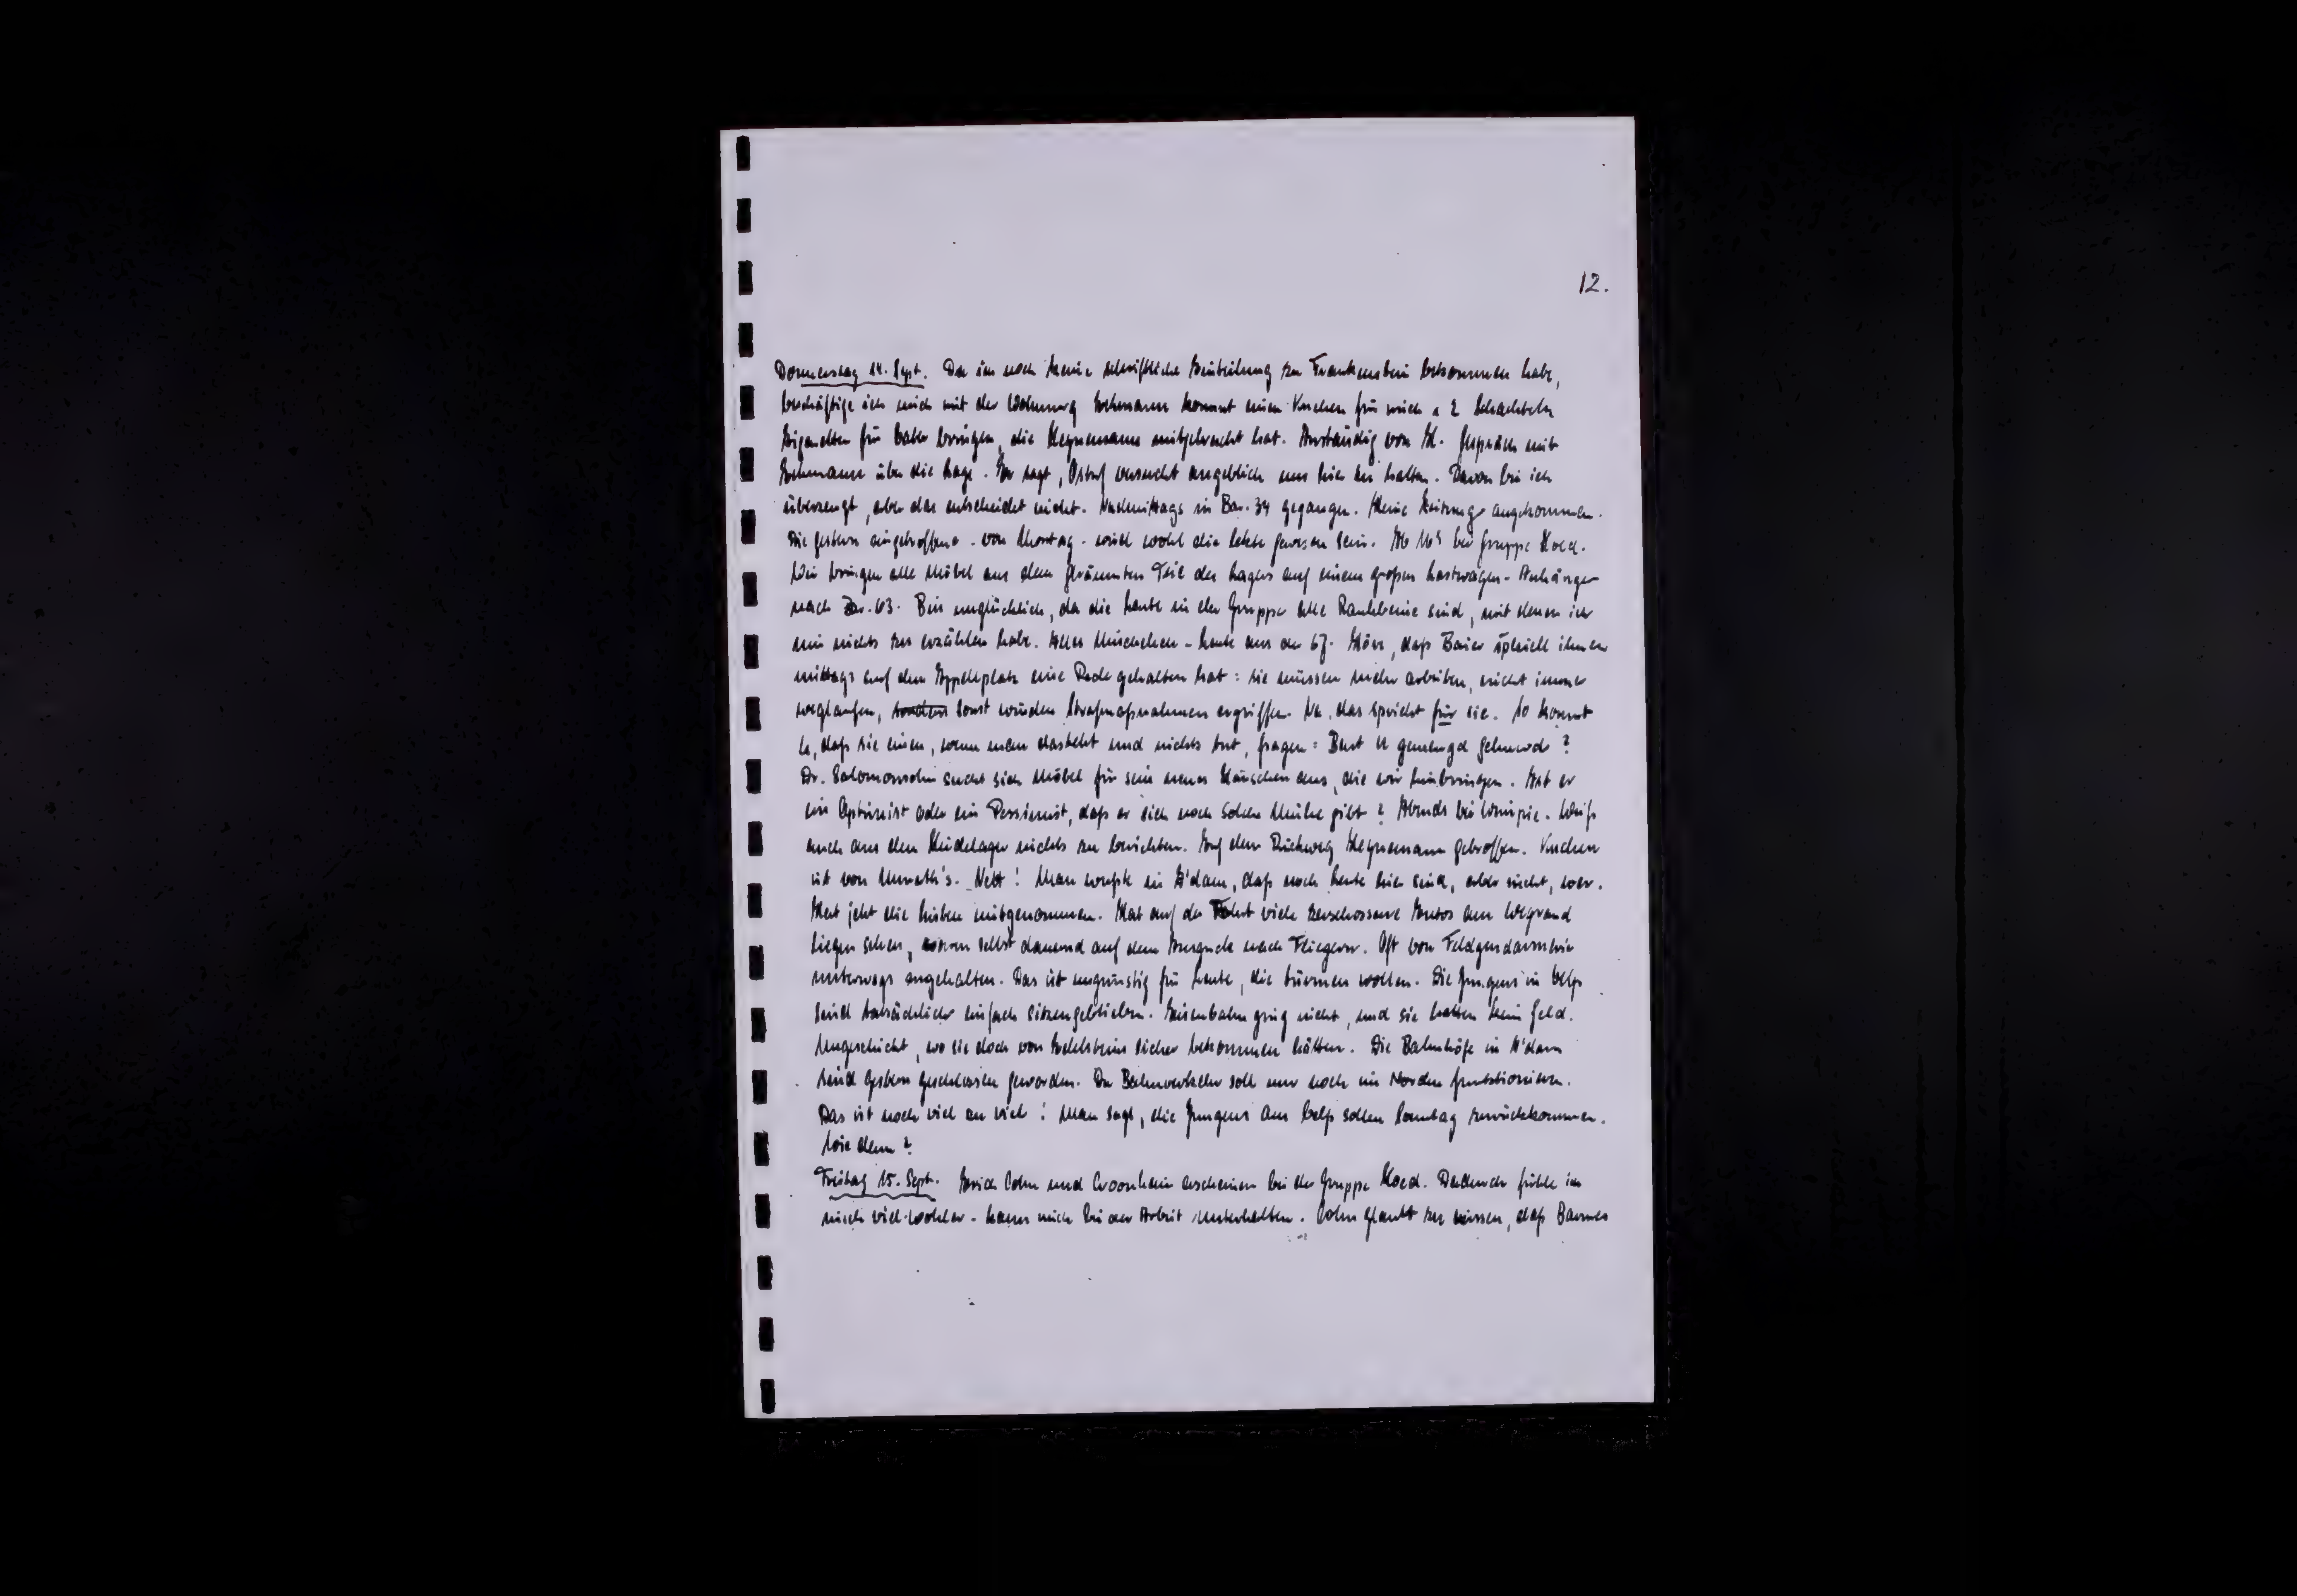 12.
Donnerstag 14. Sept. Da ich noch keine schriftliche Einteilung zu Frankenstein bekommen habe,
beschäftige ich mich mit der Wohnung kommt einen Kuchen für mich u 2 Schachteln
Zigaretten für bringen, die Heynemann mitgebracht hat. Anständig von H. Gespräch mit
über die Lage. Er sagt, Ostuf versucht angeblich uns hier zu halten. Davon bin ich
überzeugt, aber das entscheidet nicht. Nachmittags in Bar. 34 gegangen. Keine Zeitung angekommen.
Die gestern eingetroffene - von Montag - wird wohl die letzte gewesen sein. Ab bei Gruppe Koed.
Wir bringen alle Möbel aus dem geräumten Teil des Lagers auf einem großen Lastwagen-Anhänger
nach Bar. 63. Bin unglücklich, da die Leute in der Gruppe alle Rauhbeine sind, mit denen ich
mir nichts zu erzählen habe. Alles - Leute aus der 67. Höre, daß Baier speziell ihnen
mittags auf dem Appellplatz eine Rede gehalten hat: sie müssen mehr arbeiten, nicht immer
weglaufen, sondern sonst würden Strafmaßnahmen ergriffen. Na, das spricht für sie. So kommt
es, daß sie einen, wenn man dasteht und nichts tut, fragen: Bent U gemengd gehuwd?
Dr. Salomonsohn sucht sich Möbel für sein neues Häuschen aus, die wir hinbringen. Ist er
ein Optimist oder ein Pessimist, daß er sich noch solche Mühe gibt? Abends bei Wimpie. Weiß
auch aus dem Lager nichts zu berichten. Auf dem Rückweg Heynemann getroffen. Kuchen
ist von Nett! Man wußte in A'dam, daß noch Leute hier sind, aber nicht, wer.
Hat jetzt die Listen mitgenommen. Hat auf der Fahrt viele zerschossene Autos am Wegrand
liegen sehen, waren selbst dauernd auf dem Ausguck nach Fliegern. Oft von Feldgendarmerie
unterwegs angehalten. Das ist ungünstig für Leute, die türmen wollen. Die Jungens in
sind tatsächlich einfach sitzengeblieben. Eisenbahn ging nicht, und sie hatten kein Geld.
Ungeschickt, wo sie doch von Edelsteins sicher bekommen hätten. Die Bahnhöfe in A'dam
sind gestern geschlossen geworden. Der Bahnverkehr soll nur noch im Norden funktionieren.
Das ist noch viel zu viel! Man sagt, die Jungens aus sollen Sonntag zurückkommen.
Wie denn?
Freitag 15. Sept. Erich Cohn und erscheinen bei der Gruppe Koed. Dadurch fühle ich
mich viel wohler - kann mich bei der Arbeit unterhalten. Cohn glaubt zu wissen, daß